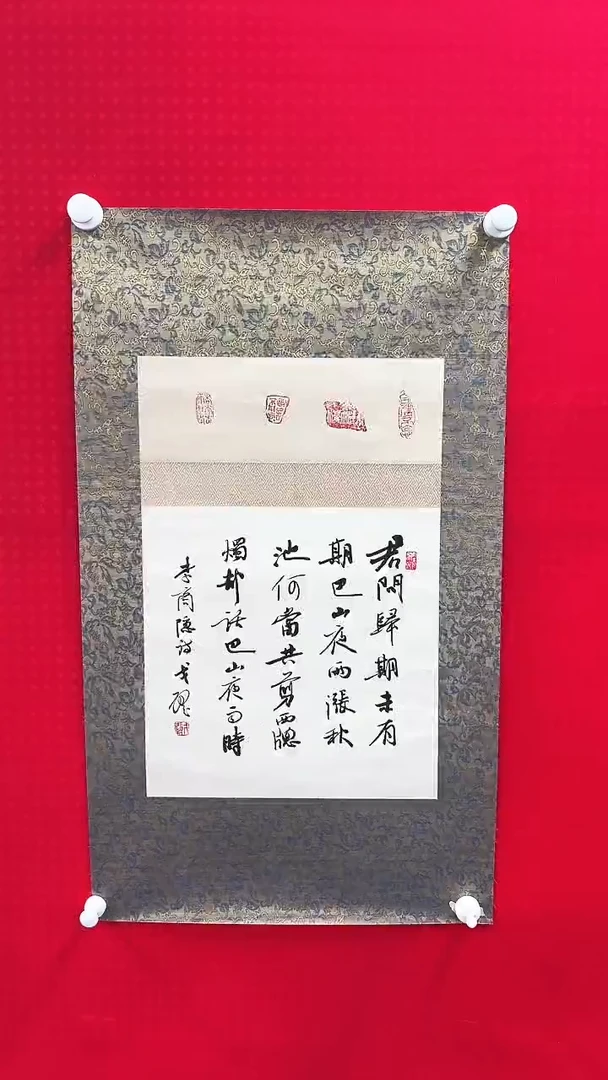 君問歸期未有
期巴山夜雨漲秋
池何當共剪西牎
燭却話巴山夜雨時
李商隐诗戈